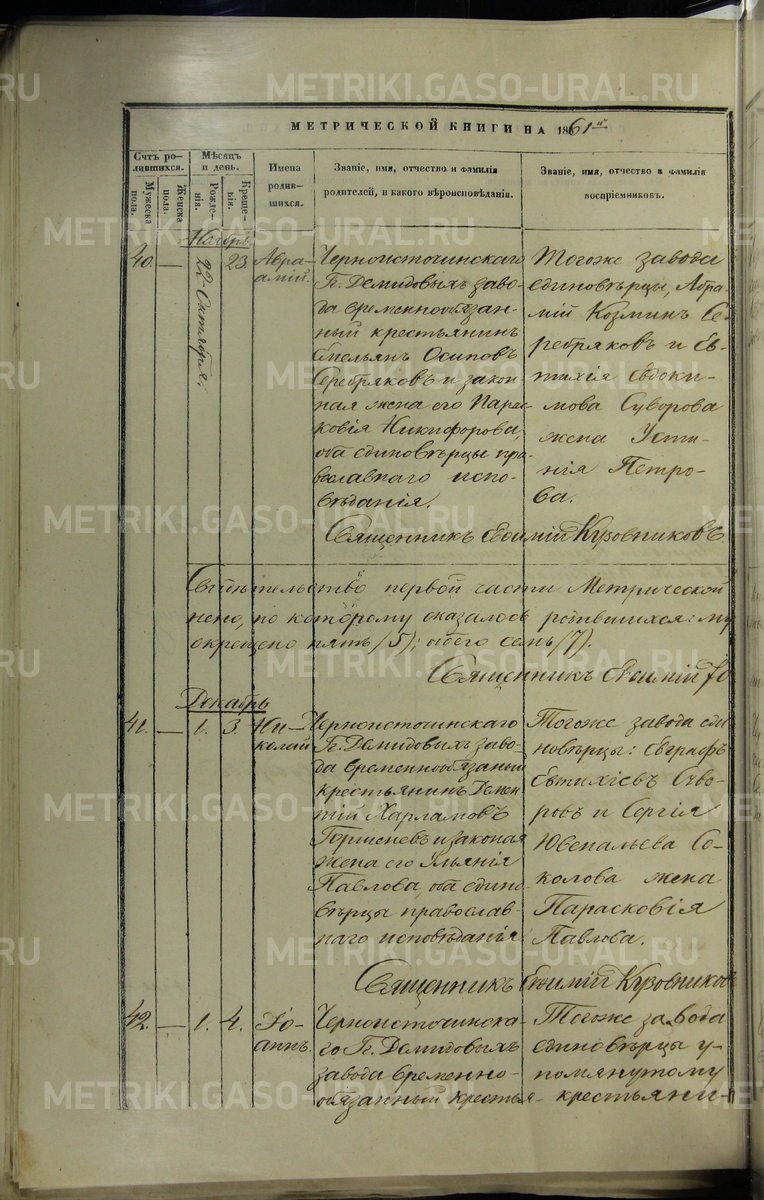 METRIKI.GASO-URAL.RU
МЕТРИЧЕСКОЙ КНИГИ НА 1861й
Счтъ родившихся.
Мужеска пола.
Женска пола.
Мѣсяцъ и день.
Рожденія.
Крещенія.
Имена родившихся.
Званіе, имя, отчество и фамилія родителей, и какого вѣроисповѣданія.
Званіе, имя, отчество и фамилія воспріемниковъ.
Ноябрь
40. — 22 Октября. 23. Авраамій.
Черноисточинскаго
Г. Демидовыхъ заво-
да временнообязан-
ный крестьянинъ
Емельянъ Осиповъ
Серебряковъ и закон-
ная жена его Парас-
ковія Никифорова,
оба единовѣрцы пра-
вославнаго испо-
вѣданія.
Тогоже завода
единовѣрцы, Авра-
мій Козминъ Се-
ребряковъ и Ев-
тихія Евдоки-
мова Суворова
жена Усти-
нія Петро-
ва.
Священникъ Евѳимій Кузовниковъ.
Свидѣтельство первой части Метрической
нено, по которому оказалось родившихся: му
окрещено пять (5); обоего семь (7).
Священникъ Евѳимій
Декабрь
41. — 1. 3. Николай
Черноисточинскаго
Г. Демидовыхъ заво-
да временнообязаный
крестьянинъ Темен-
тій Харламовъ
и законая
жена его Ульянія
Павлова, оба едино-
вѣрцы православ-
наго исповѣданія
Тогоже завода еди
новѣрцы: Евграфъ
Евтихіевъ Суво-
ровъ и Сергія
Ювенальева Со-
колова жена
Парасковія
Павлова.
Священникъ Евѳимій Кузовников
42. — 1. 4. Іоаннъ.
Черноисточинска-
го Г. Демидовыхъ
завода временно-
обязанный крестья-
Тогоже завода
единовѣрцы у-
помянутому
крестьяни-